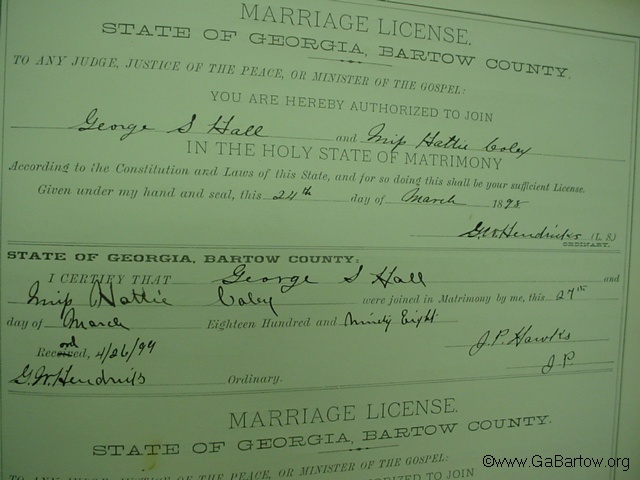 MARRIAGE LICENSE.
STATE OF GEORGIA, BARTOW COUNTY.
TO ANY JUDGE, JUSTICE OF THE PEACE, OR MINISTER OF THE GOSPEL:
YOU ARE HEREBY AUTHORIZED TO JOIN
George S Hall and Miss Hattie Coley
IN THE HOLY STATE OF MATRIMONY
According to the Constitution and Laws of this State, and for so doing this shall be your sufficient License.
Given under my hand and seal, this 24th day of March 1898
G.W. Hendricks (L. S.)
ORDINARY.
STATE OF GEORGIA, BARTOW COUNTY:
I CERTIFY THAT George S Hall and
Miss Hattie Coley were joined in Matrimony by me, this 27th
day of March Eighteen Hundred and Ninety Eight
J.P. Hawks
J.P.
Recorded, 4/26/99
G.W. Hendricks Ordinary.
MARRIAGE LICENSE.
STATE OF GEORGIA, BARTOW COUNTY.
TO ANY JUDGE, JUSTICE OF THE PEACE, OR MINISTER OF THE GOSPEL:
AUTHORIZED TO JOIN
©www.GaBartow.org